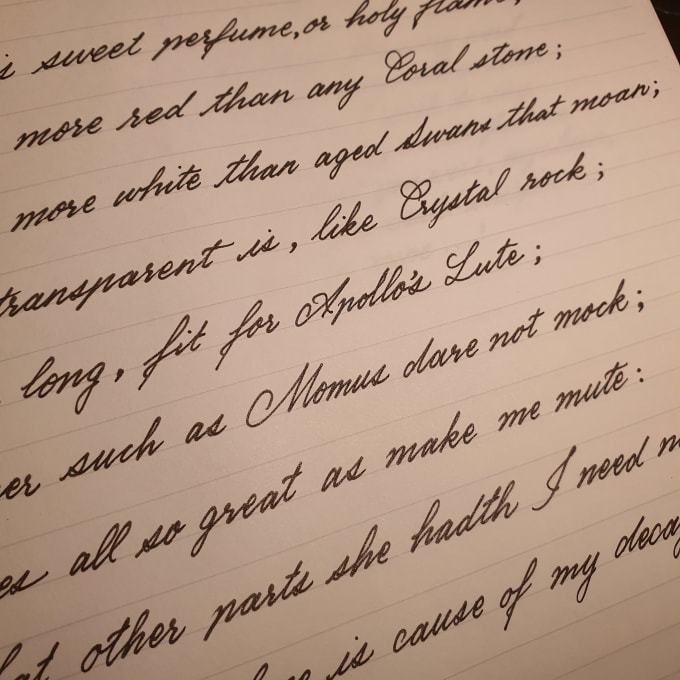 sweet perfume, or holy flame;
more red than any Coral stone;
more white than aged Swans that moan;
transparent is, like Crystal rock;
long, fit for Apollo's Lute;
such as Momus dare not mock;
all so great as make me mute:
other parts she hadth I need
is cause of my